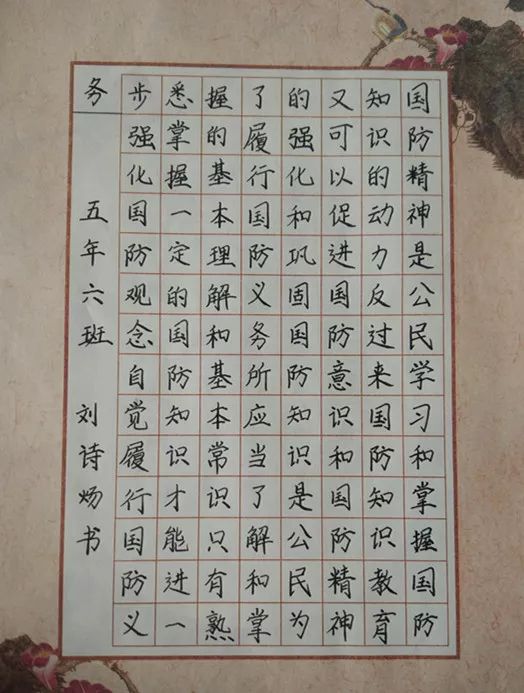 国防精神是公民学习和掌握国防
知识的动力反过来国防知识教育
又可以促进国防意识和国防精神
的强化和巩固国防知识是公民为
了履行国防义务所应当了解和掌
握的基本理解和基本常识只有熟
悉掌握一定的国防知识才能进一
步强化国防观念自觉履行国防义
务
五年六班 刘诗炀书